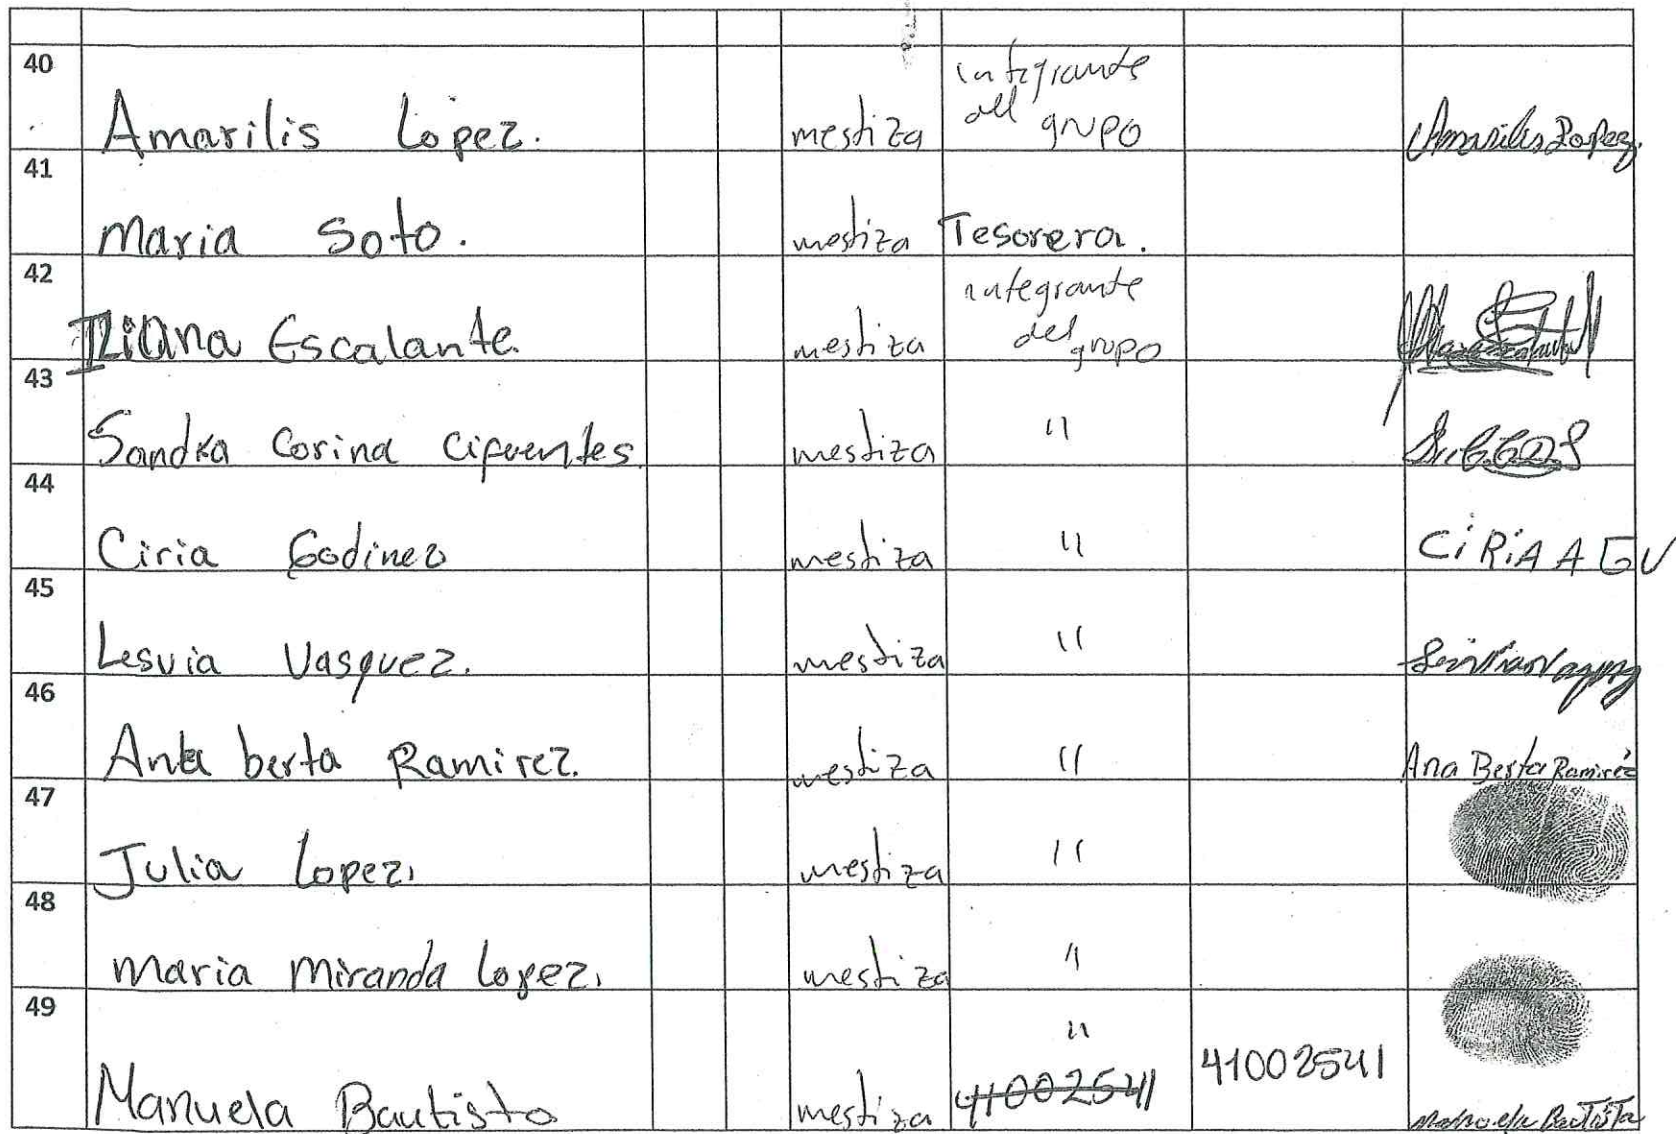 40 Amarilis Lopez. mestiza integrante del grupo Amarilis Lopez.
41 Maria Soto. mestiza Tesorera.
42 Iliana Escalante. mestiza integrante del grupo
43 Sandra Corina Cifuentes mestiza "
44 Ciria Godinez mestiza " CiRiA A GV
45 Lesvia Vasquez. mestiza "
46 Ana berta Ramirez. mestiza " Ana Berta Ramiréz
47 Julia Lopez. mestiza "
48 Maria Miranda Lopez. mestiza "
49 Manuela Bautista mestiza " 41002541 41002541 Manuela Bautista